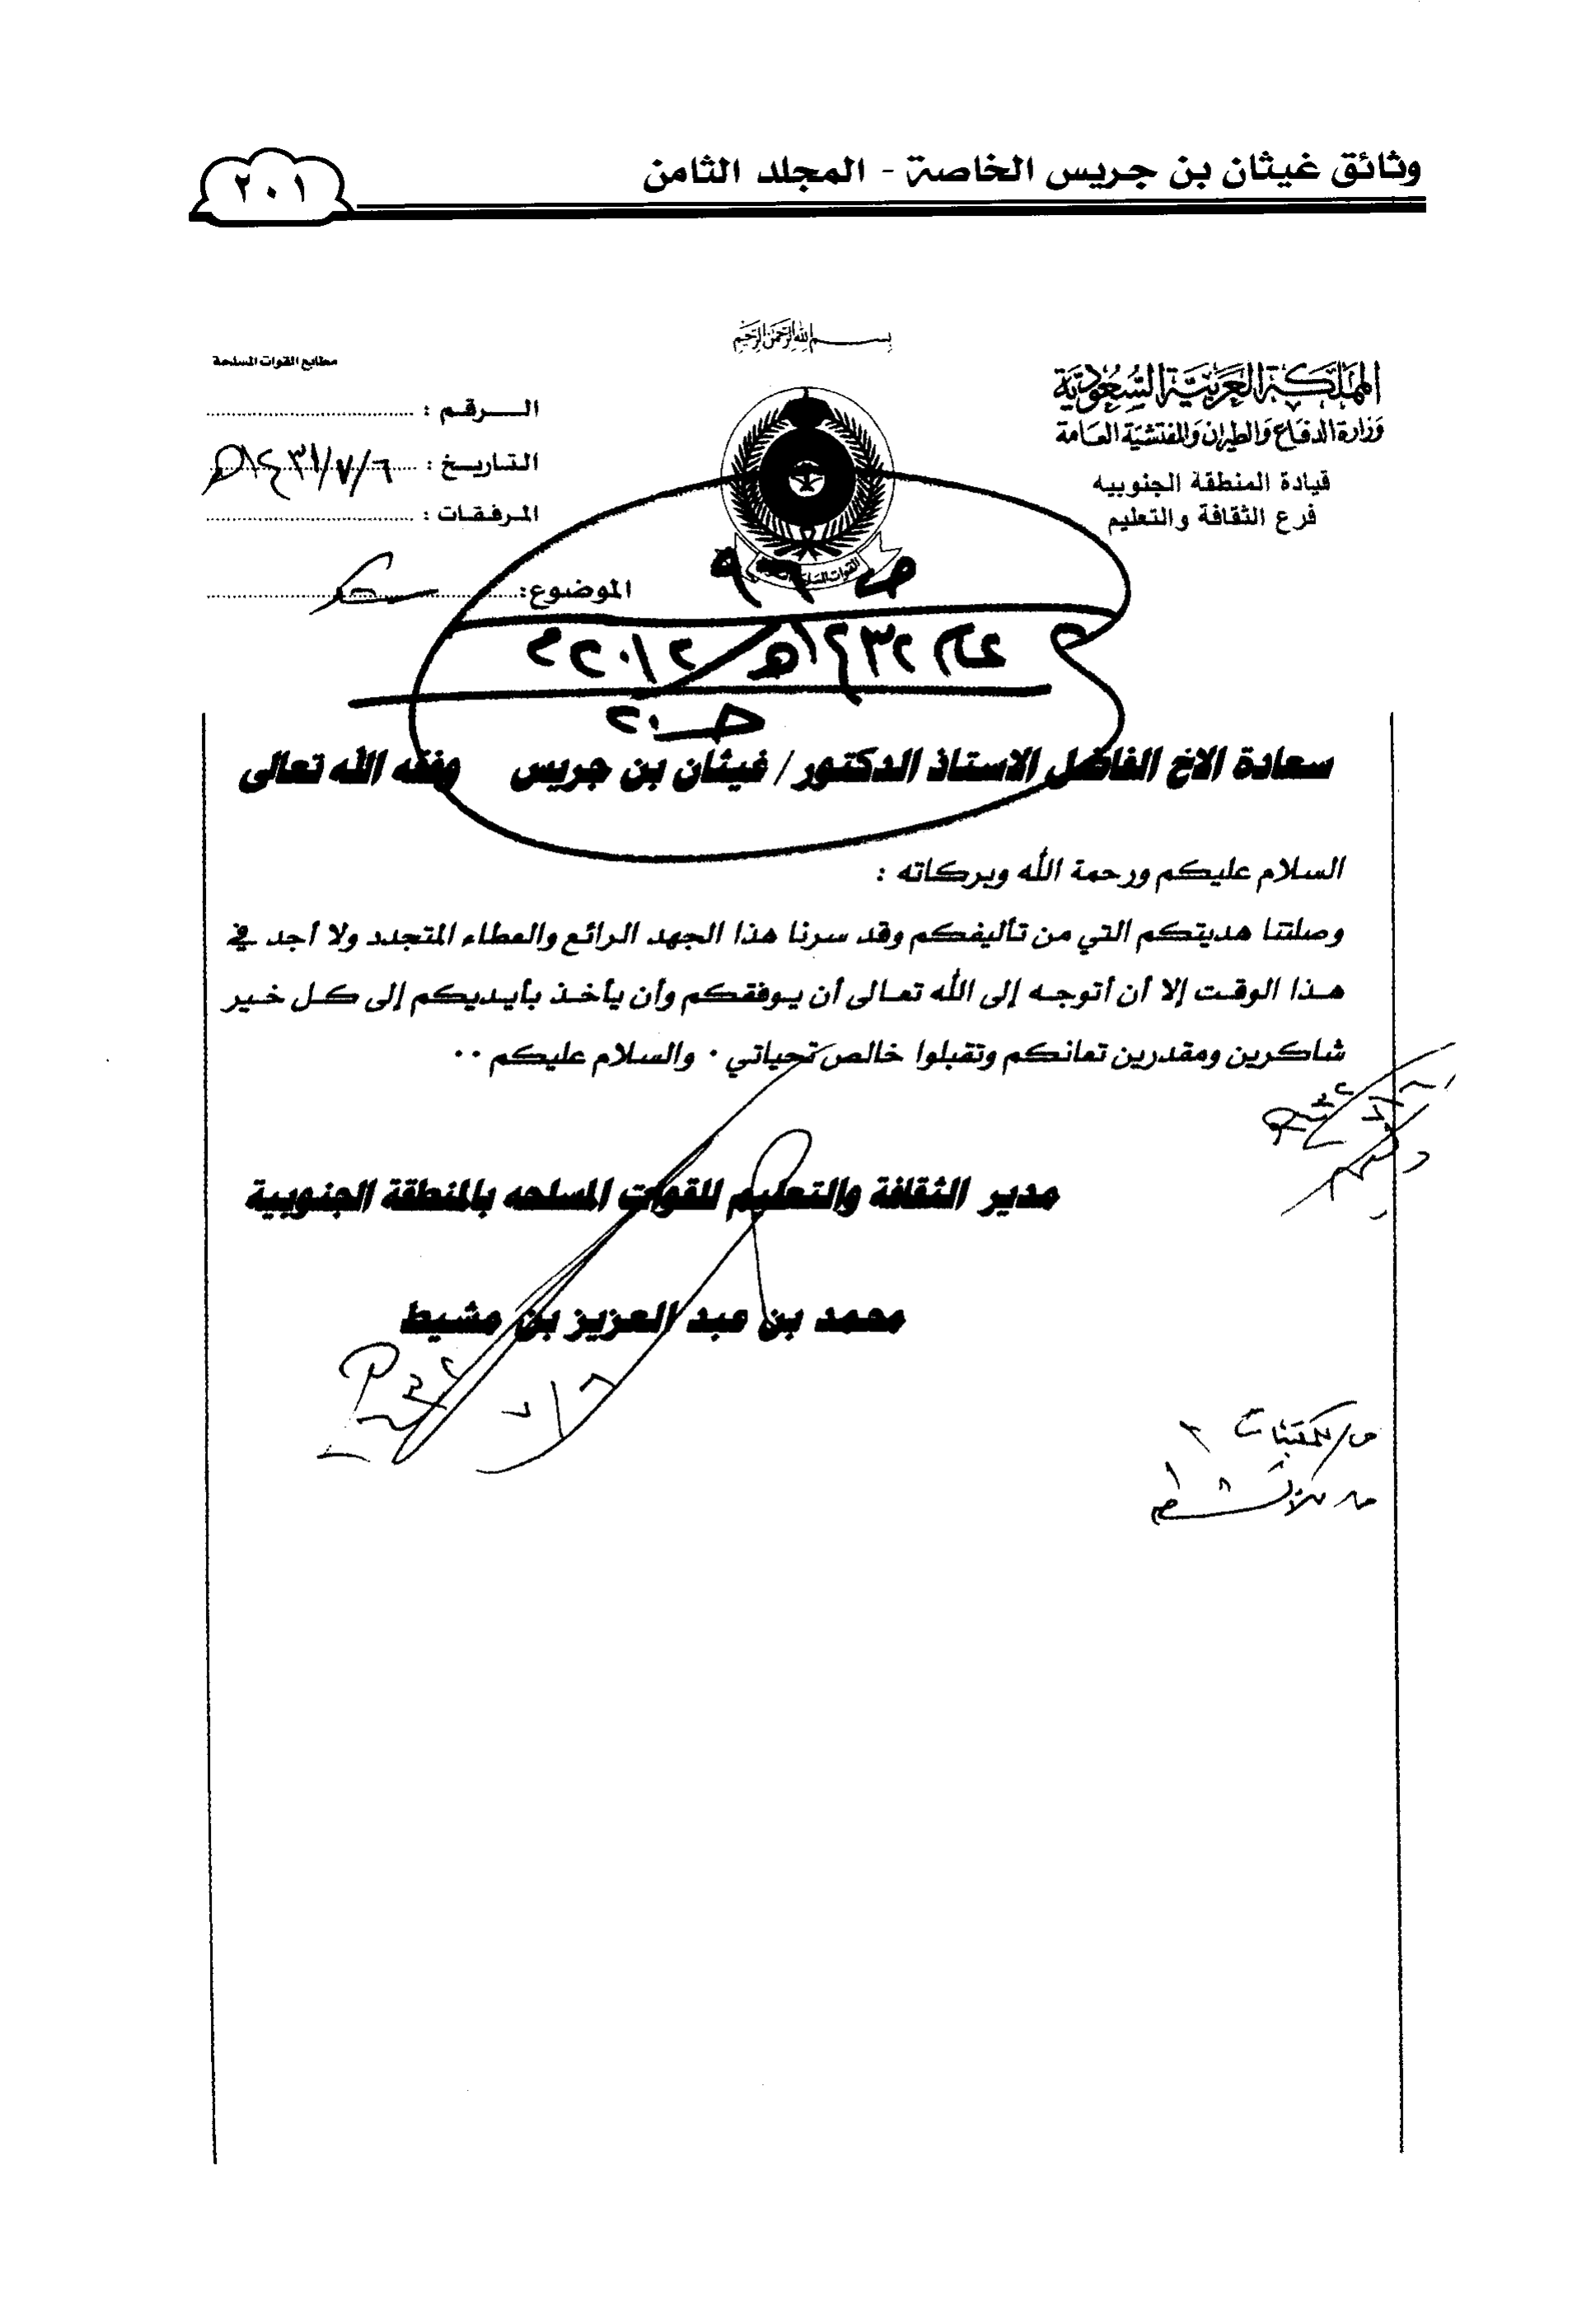 وثائق غيثان بن جريس الخاصة - المجلد الثامن
٢٠١
بسم الله الرحمن الرحيم
المملكة العربية السعودية
وزارة الدفاع والطيران والمفتشية العامة
قيادة المنطقة الجنوبيه
فرع الثقافة والتعليم
مطابع القوات المسلحة
الـرقـم :
التـاريـخ : ١٤٣١/٧/٦هـ
المرفقات :
الموضوع: شكر
سعادة الاخ الفاضل الاستاذ الدكتور/ غيثان بن جريس وفقه الله تعالى
السلام عليكم ورحمة الله وبركاته :
وصلتنا هديتكم التي من تأليفكم وقد سرنا هذا الجهد الرائع والعطاء المتجدد ولا أجد في
هـذا الوقـت إلا أن أتوجـه إلى الله تعـالى أن يـوفقكم وأن يأخـذ بأيـديكم إلى كـل خـير
شاكرين ومقدرين تعانكم وتقبلوا خالص تحياتي . والسلام عليكم ..
مدير الثقافة والتعليم للقوات المسلحه بالمنطقة الجنوبية
محمد بن عبد العزيز بن مشيط
٧/٦
ص/للمكتبات